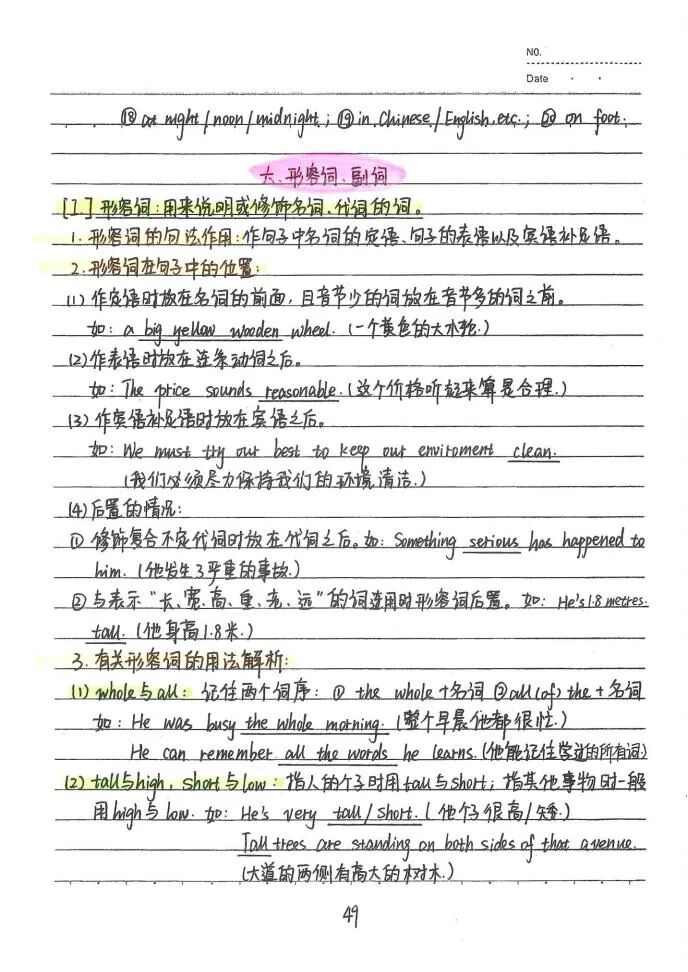 NO.
Date
⑱ at night/noon/midnight.; ⑲ in Chinese/English, etc.; ⑳ on foot.
六、形容词、副词
[1.] 形容词：用来说明或修饰名词、代词的词。
1. 形容词的句法作用：作句子中名词的定语、句子的表语以及宾语补足语。
2. 形容词在句子中的位置：
(1) 作定语时放在名词的前面，且音节少的词放在音节多的词之前。
如：a big yellow wooden wheel. (一个黄色的大木轮.)
(2) 作表语时放在连系动词之后。
如：The price sounds reasonable. (这个价格听起来算是合理.)
(3) 作宾语补足语时放在宾语之后。
如：We must try our best to keep our enviroment clean.
(我们必须尽力保持我们的环境清洁.)
(4) 后置的情况：
① 修饰复合不定代词时放在代词之后。如：Something serious has happened to
him. (他发生了严重的事故.)
② 与表示“长、宽、高、重、老、远”的词连用时形容词后置。如：He's 1.8 metres.
tall. (他身高1.8米.)
3. 有关形容词的用法解析：
(1) whole与all：记住两个词序：① the whole+名词 ②all (of) the+名词
如：He was busy the whole morning. (整个早晨他都很忙.)
He can remember all the words he learns. (他能记住学过的所有词.)
(2) tall与high, short与low：指人的个子时用tall与short；指其他事物时一般
用high与low. 如：He's very tall/short. (他个子很高/矮.)
Tall trees are standing on both sides of that avenue.
(大道的两侧有高大的树木.)
49